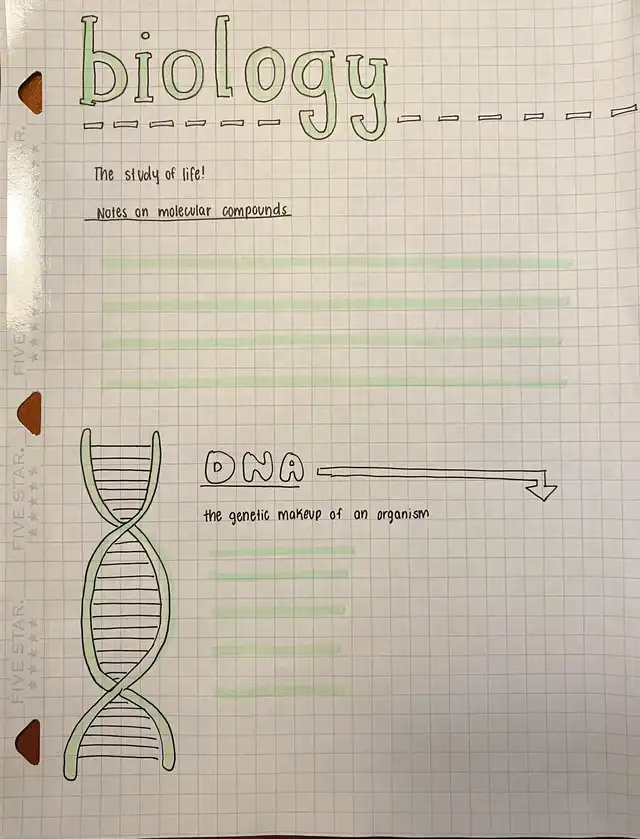 biology
The study of life!
Notes on molecular compounds
DNA
the genetic makeup of an organism
FIVE STAR.
FIVE STAR.
FIVE STAR.